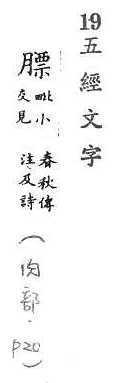 19五經文字
膘 毗小 春秋傳
交見 注及詩
(肉部·P20)